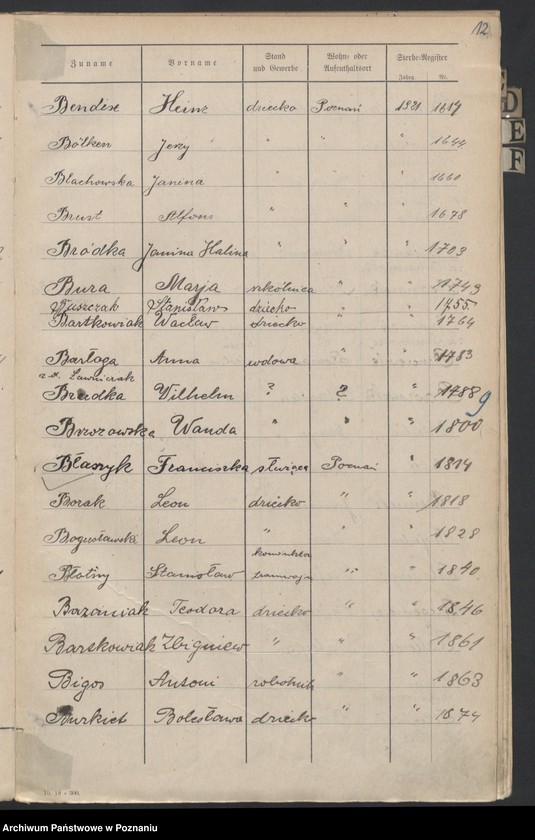 12
Zuname Vorname Stand und Gewerbe Wohn- oder Aufenthaltsort Sterbe-Register
Jahrg. Nr.
D
E
F
Bendix Heinz dziecko Poznań 1921 1617
Bölken Jerzy " " " 1644
Blachowska Janina " " " 1660
Brust Alfons " " " 1678
Bródka Janina Halina " " " 1703
Bura Marja " " 1749
Stanisław dziecko " " 1755
Bartkowiak Wacław dziecko " " 1764
Barłoga Anna wdowa " " 1783
Ławniczak
Brudka Wilhelm ? ? " 1788 9
Brzozowska Wanda " " " 1800
Błaszyk Franciszka służąca Poznań " 1814
Borak Leon dziecko " " 1818
Bogusławski Leon " " " 1828
Błotny Stanisław " " 1840
Bazaniak Teodora dziecko " " 1846
Bartkowiak Zbigniew " " " 1861
Bigos Antoni robotnik " " 1863
Burkiet Bolesława dziecko " " 1874
Archiwum Państwowe w Poznaniu